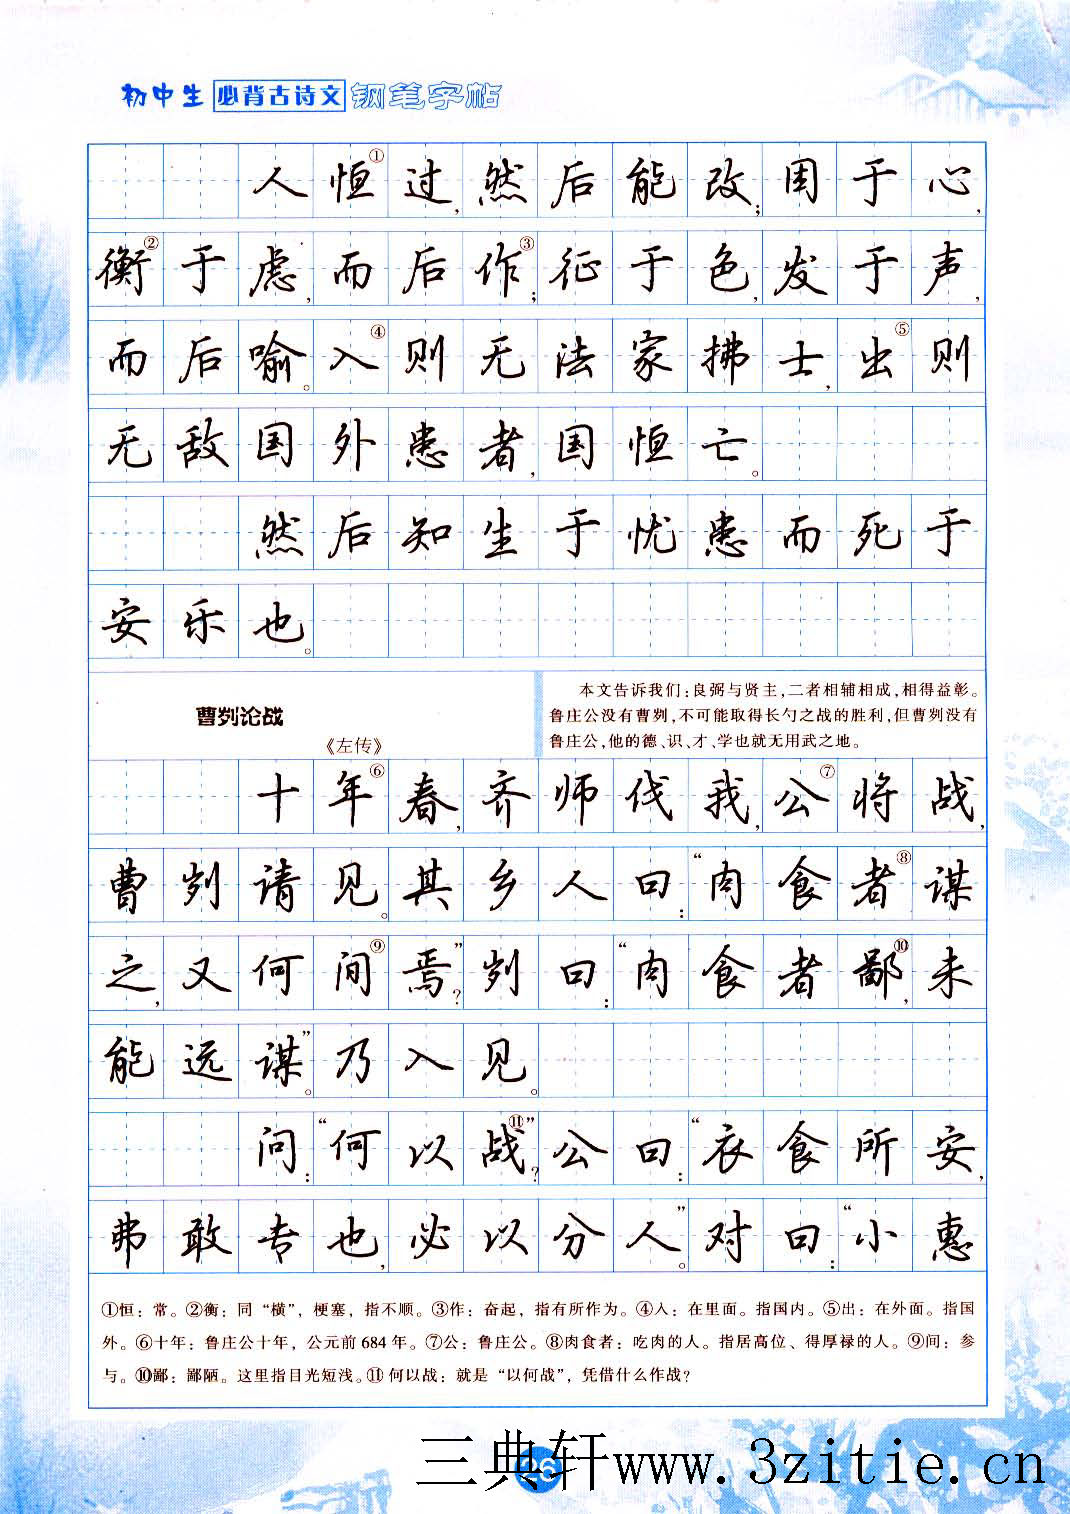 初中生必背古诗文钢笔字帖
人恒①过,然后能改;困于心,
衡②于虑,而后作③;征于色,发于声,
而后喻。入④则无法家拂士,出⑤则
无敌国外患者,国恒亡。
然后知生于忧患而死于
安乐也。
曹刿论战
《左传》
本文告诉我们:良弼与贤主,二者相辅相成,相得益彰。
鲁庄公没有曹刿,不可能取得长勺之战的胜利,但曹刿没有
鲁庄公,他的德、识、才、学也就无用武之地。
十年⑥春,齐师伐我,公⑦将战,
曹刿请见。其乡人曰:“肉食者⑧谋
之,又何间⑨焉?”刿曰:“肉食者鄙⑩,未
能远谋。”乃入见。
问:“何以战⑪?”公曰:“衣食所安,
弗敢专也,必以分人。”对曰:“小惠
①恒:常。②衡:同“横”,梗塞,指不顺。③作:奋起,指有所作为。④入:在里面。指国内。⑤出:在外面。指国
外。⑥十年:鲁庄公十年,公元前684年。⑦公:鲁庄公。⑧肉食者:吃肉的人。指居高位、得厚禄的人。⑨间:参
与。⑩鄙:鄙陋。这里指目光短浅。⑪何以战:就是“以何战”,凭借什么作战?
26
三典轩www.3zitie.cn